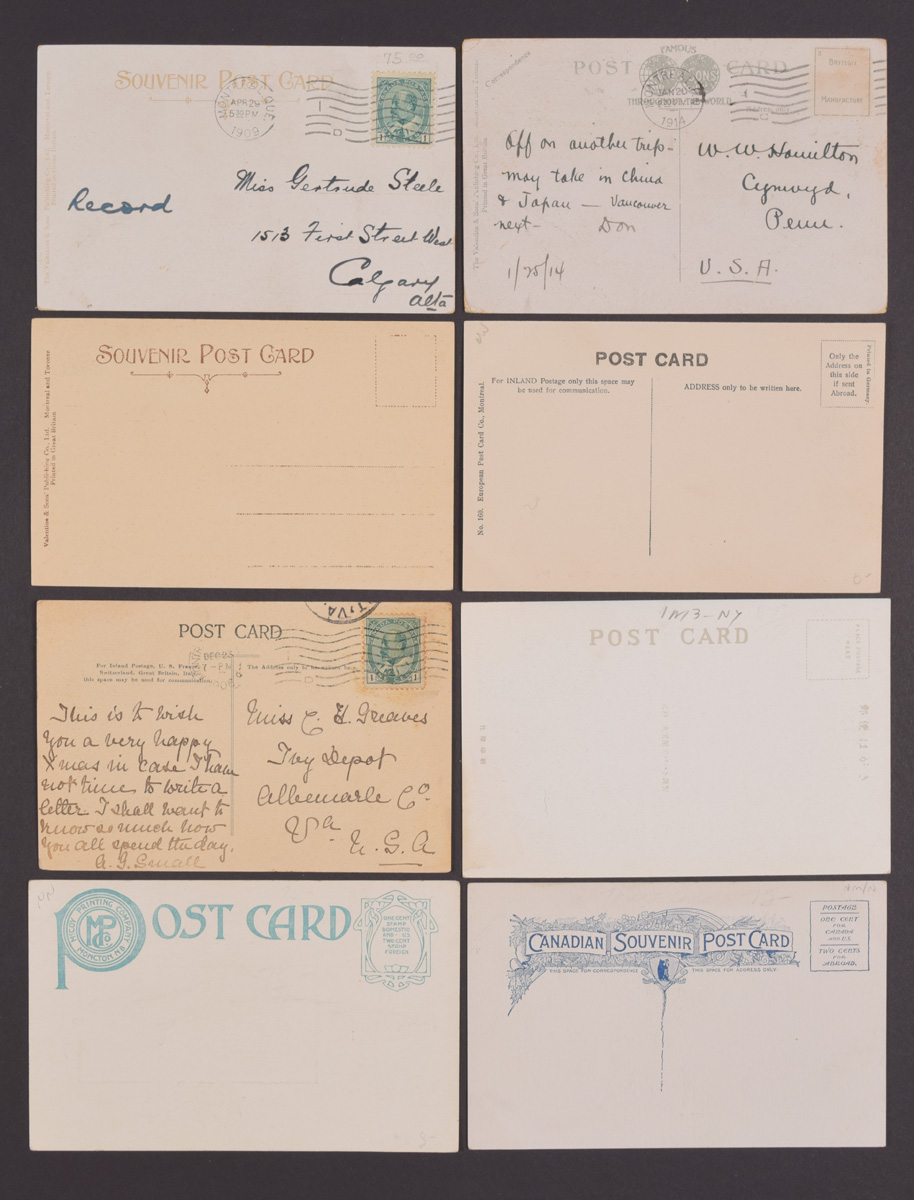 75
SOUVENIR POST CARD
MONTREAL, QUE
APR 29
5 30 PM
1909
D
1 1
Record
Miss Gertrude Steele
1513 First Street West
Calgary
Alta
Correspondence
POST CARD
FAMOUS
THROUGHOUT THE WORLD
MONTREAL
JAN 20
1914
BRITISH
MANUFACTURE
off on another trip-
may take in China
& Japan — Vancouver
next- Don
1/25/14
W. W. Hamilton
Cynwyd,
Penn.
U. S. A.
SOUVENIR POST CARD
Valentine & Sons' Publishing Co., Ltd. Montreal and Toronto
Printed in Great Britain
POST CARD
For INLAND Postage only this space may
be used for communication.
ADDRESS only to be written here.
Only the
Address on
this side
if sent
Abroad.
Printed in Germany.
No. 160. European Post Card Co., Montreal.
POST CARD
DEC 23
7 - PM
D
1 1
For Inland Postage, U. S. France,
Switzerland, Great Britain, Italy,
this space may be used for communication
The Address only to be written here
This is to wish
you a very happy
Xmas in case I have
not time to write a
letter I shall want to
know so much how
you all spend the day.
A. J. Small
Miss C. H. Greaves
Ivy Depot
Albemarle Co
Va
U.S.A
1M3-NY
POST CARD
McCOY PRINTING COMPANY
MONCTON N.B.
POST CARD
ONE CENT
STAMP
DOMESTIC
AND U.S.
TWO CENT
STAMP
FOREIGN
CANADIAN SOUVENIR POST CARD
THIS SPACE FOR CORRESPONDENCE
THIS SPACE FOR ADDRESS ONLY.
POSTAGE
ONE CENT
FOR
CANADA
AND U.S.
TWO CENTS
FOR
ABROAD.